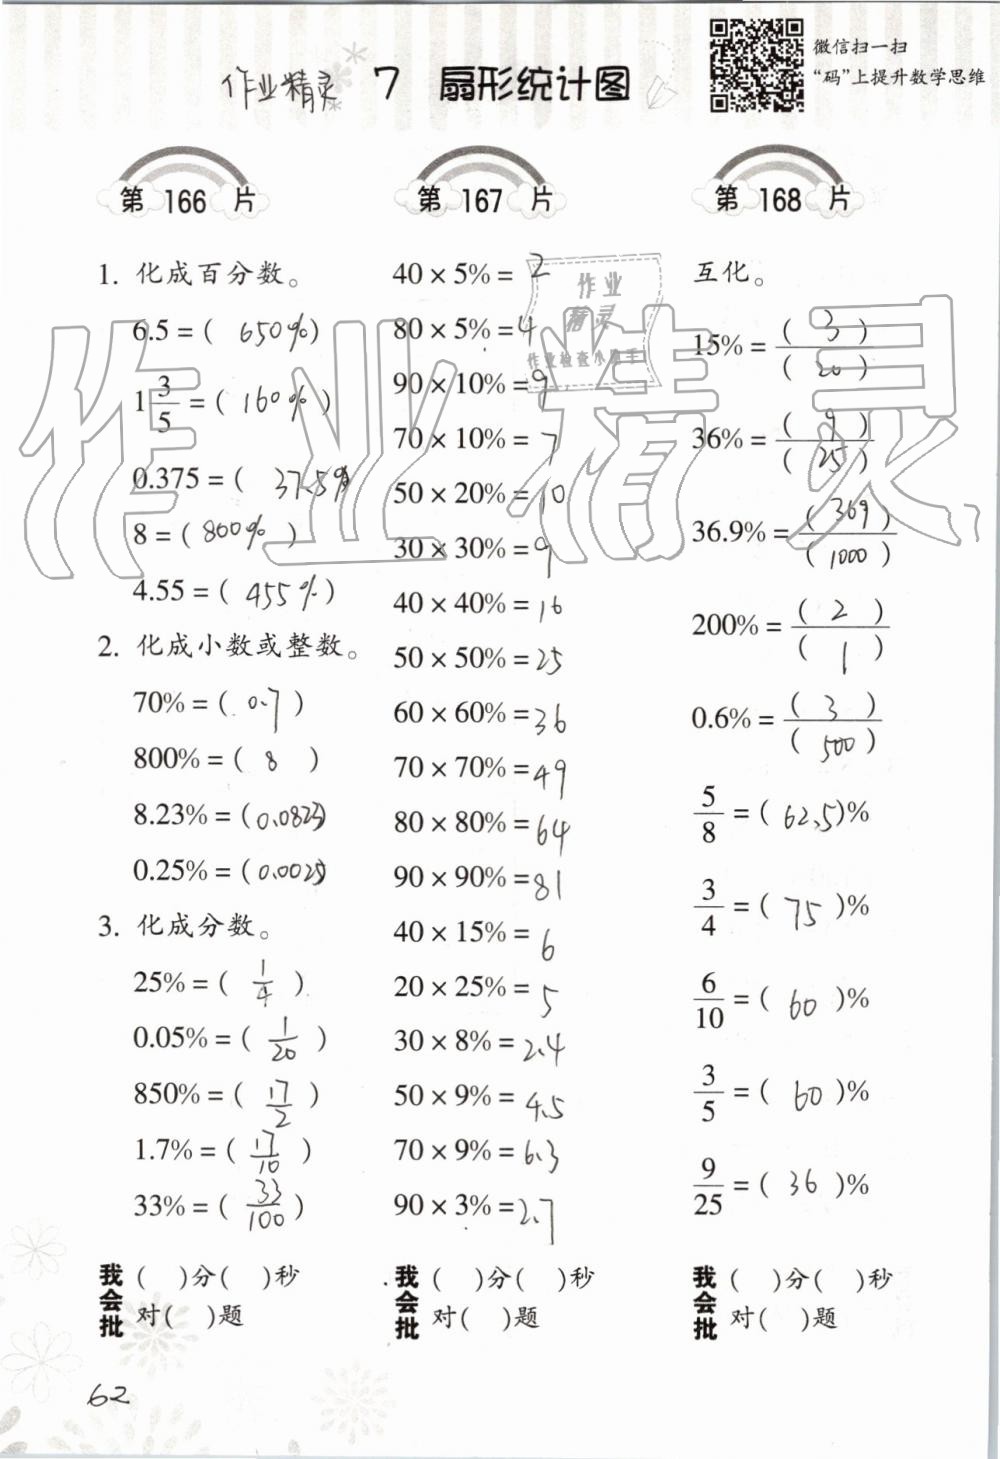 微信扫一扫
“码”上提升数学思维
作业精灵 7 扇形统计图
第 166 片
1. 化成百分数。
6.5 = ( 650% )
1 3/5 = ( 160% )
0.375 = ( 37.5% )
8 = ( 800% )
4.55 = ( 455% )
2. 化成小数或整数。
70% = ( 0.7 )
800% = ( 8 )
8.23% = ( 0.0823 )
0.25% = ( 0.0025 )
3. 化成分数。
25% = ( 1/4 )
0.05% = ( 1/20 )
850% = ( 17/2 )
1.7% = ( 17/10 )
33% = ( 33/100 )
我会批 ( )分( )秒
对( )题
第 167 片
40 × 5% = 2
80 × 5% = 4
90 × 10% = 9
70 × 10% = 7
50 × 20% = 10
30 × 30% = 9
40 × 40% = 16
50 × 50% = 25
60 × 60% = 36
70 × 70% = 49
80 × 80% = 64
90 × 90% = 81
40 × 15% = 6
20 × 25% = 5
30 × 8% = 2.4
50 × 9% = 4.5
70 × 9% = 6.3
90 × 3% = 2.7
我会批 ( )分( )秒
对( )题
第 168 片
互化。
15% = ( 3 )/( 20 )
36% = ( 9 )/( 25 )
36.9% = ( 369 )/( 1000 )
200% = ( 2 )/( 1 )
0.6% = ( 3 )/( 500 )
5/8 = ( 62.5 )%
3/4 = ( 75 )%
6/10 = ( 60 )%
3/5 = ( 60 )%
9/25 = ( 36 )%
我会批 ( )分( )秒
对( )题
作业
精灵
作业检查小助手
作业精灵
62